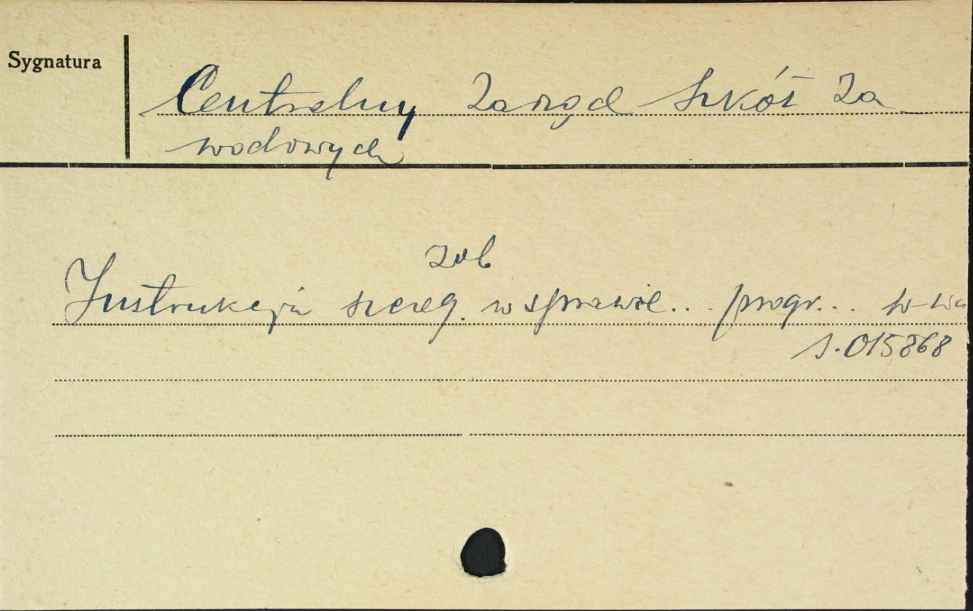 Sygnatura
Centralny Zarząd Szkół Za
wodowych
zob
Instrukcja szczeg. w sprawie... progr... W-wa
s. 015868